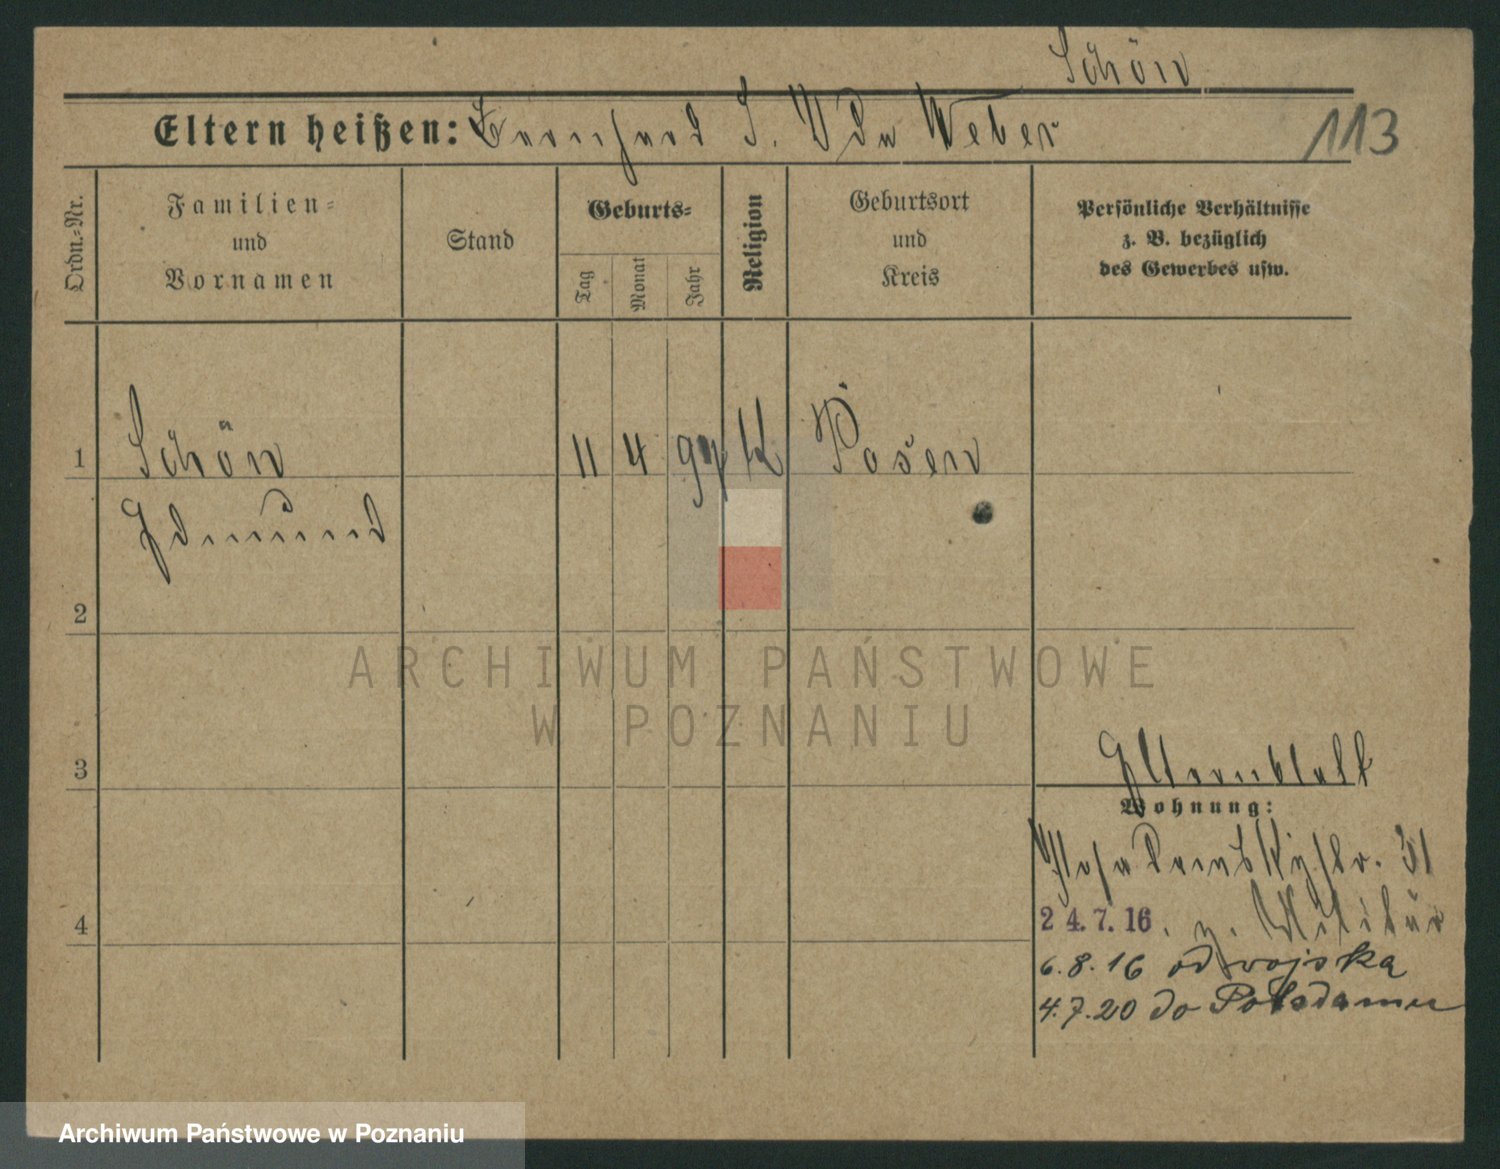 Schön
Eltern heißen: Bernhard S. Ida Weber
113
Ordn.=Nr.
Familien=
und
Vornamen
Stand
Geburts=
Tag
Monat
Jahr
Religion
Geburtsort
und
Kreis
Persönliche Verhältnisse
z. B. bezüglich
des Gewerbes usw.
1 Schön 11 4 97 k Posen
Edmund
2
ARCHIWUM PAŃSTWOWE
W POZNANIU
3
Elternblatt
Wohnung:
str. 31
4
24.7.16. z. Militär
6.8.16 od wojska
4.7.20 do Potsdamu
Archiwum Państwowe w Poznaniu